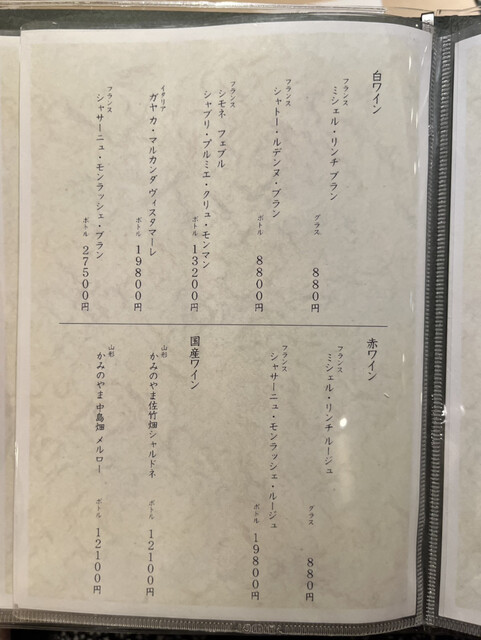 白ワイン
フランス
ミシェル・リンチ ブラン
グラス 880円
フランス
シャトー・ルデンヌ・ブラン
ボトル 8800円
フランス
シモネ フェブル
シャブリ・プルミエ・クリュ・モンマン
ボトル 13200円
イタリア
ガヤ カ・マルカンダ ヴィスタマーレ
ボトル 19800円
フランス
シャサーニュ・モンラッシェ・ブラン
ボトル 27500円
赤ワイン
フランス
ミシェル・リンチ ルージュ
グラス 880円
フランス
シャサーニュ・モンラッシェ・ルージュ
ボトル 19800円
国産ワイン
山形
かみのやま佐竹畑シャルドネ
ボトル 12100円
山形
かみのやま 中島畑 メルロー
ボトル 12100円